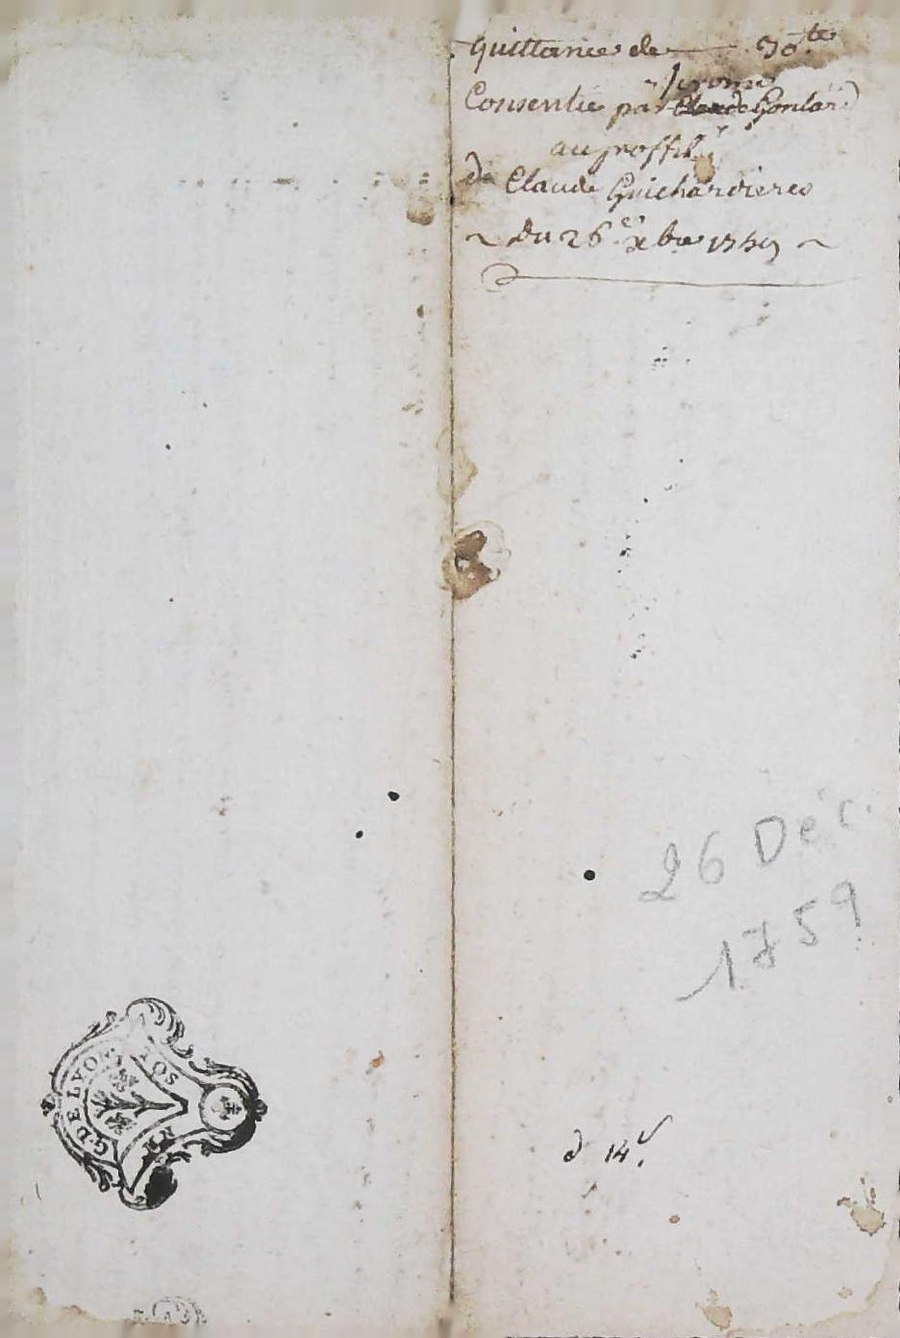 Quittance de 30 te
Jerome
Consentie par Claude Goulard
au proffit
de Claude Guichardieres
du 26e xbre 1759
26 Déc.
1759
G DE LYON
SOL
d 14